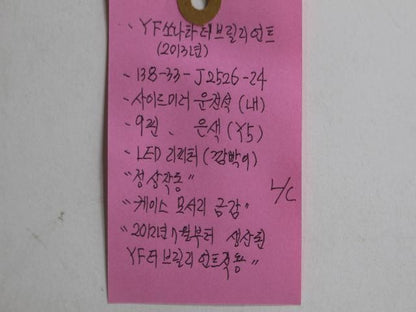 - YF쏘나타 더 브릴리언트
(2013년)
- 138-33-J2526-24
- 사이드미러 운전석 (내)
- 9핀、 은색 (Y5)
- LED 리피터 (깜박이)
"정상작동" L/C
"케이스 모서리 금감"
"2012년 7월부터 생산된
YF더브릴리언트적용"